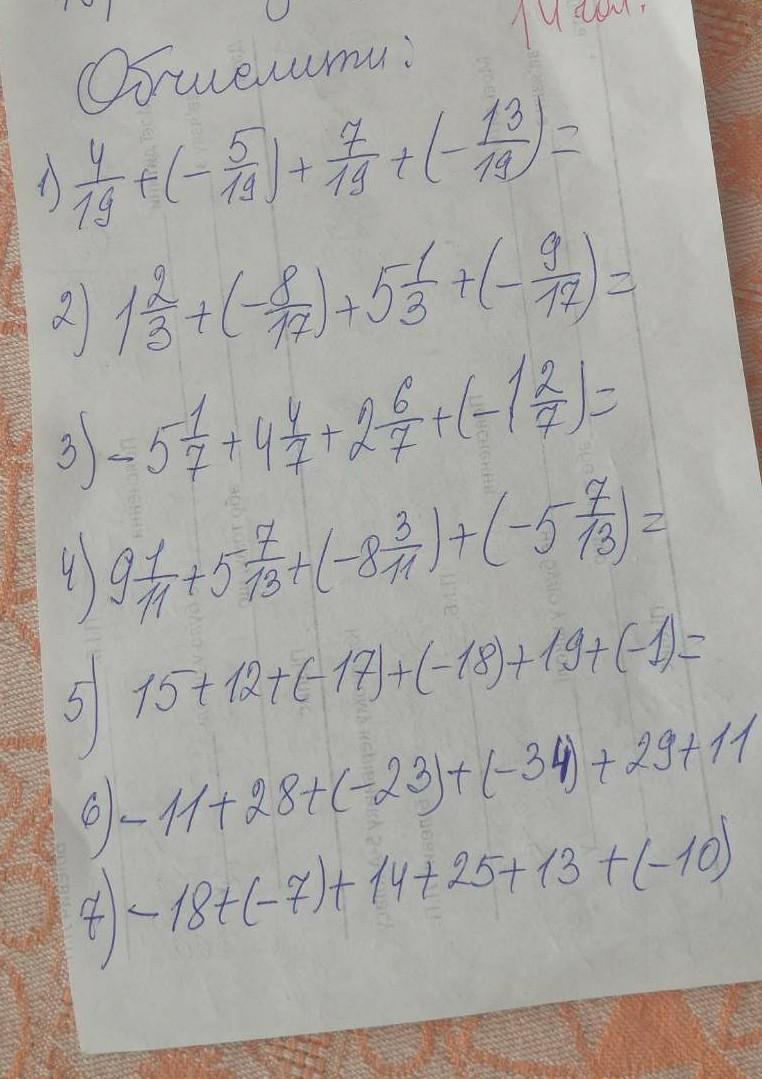 Обчислити:
1) 4/19 + (- 5/19) + 7/19 + (- 13/19) =
2) 1 2/3 + (- 8/17) + 5 1/3 + (- 9/17) =
3) - 5 1/7 + 4 4/7 + 2 6/7 + (- 1 2/7) =
4) 9 1/11 + 5 7/13 + (- 8 3/11) + (- 5 7/13) =
5) 15 + 12 + (-17) + (-18) + 19 + (-1) =
6) - 11 + 28 + (-23) + (-34) + 29 + 11
7) - 18 + (-7) + 14 + 25 + 13 + (-10)